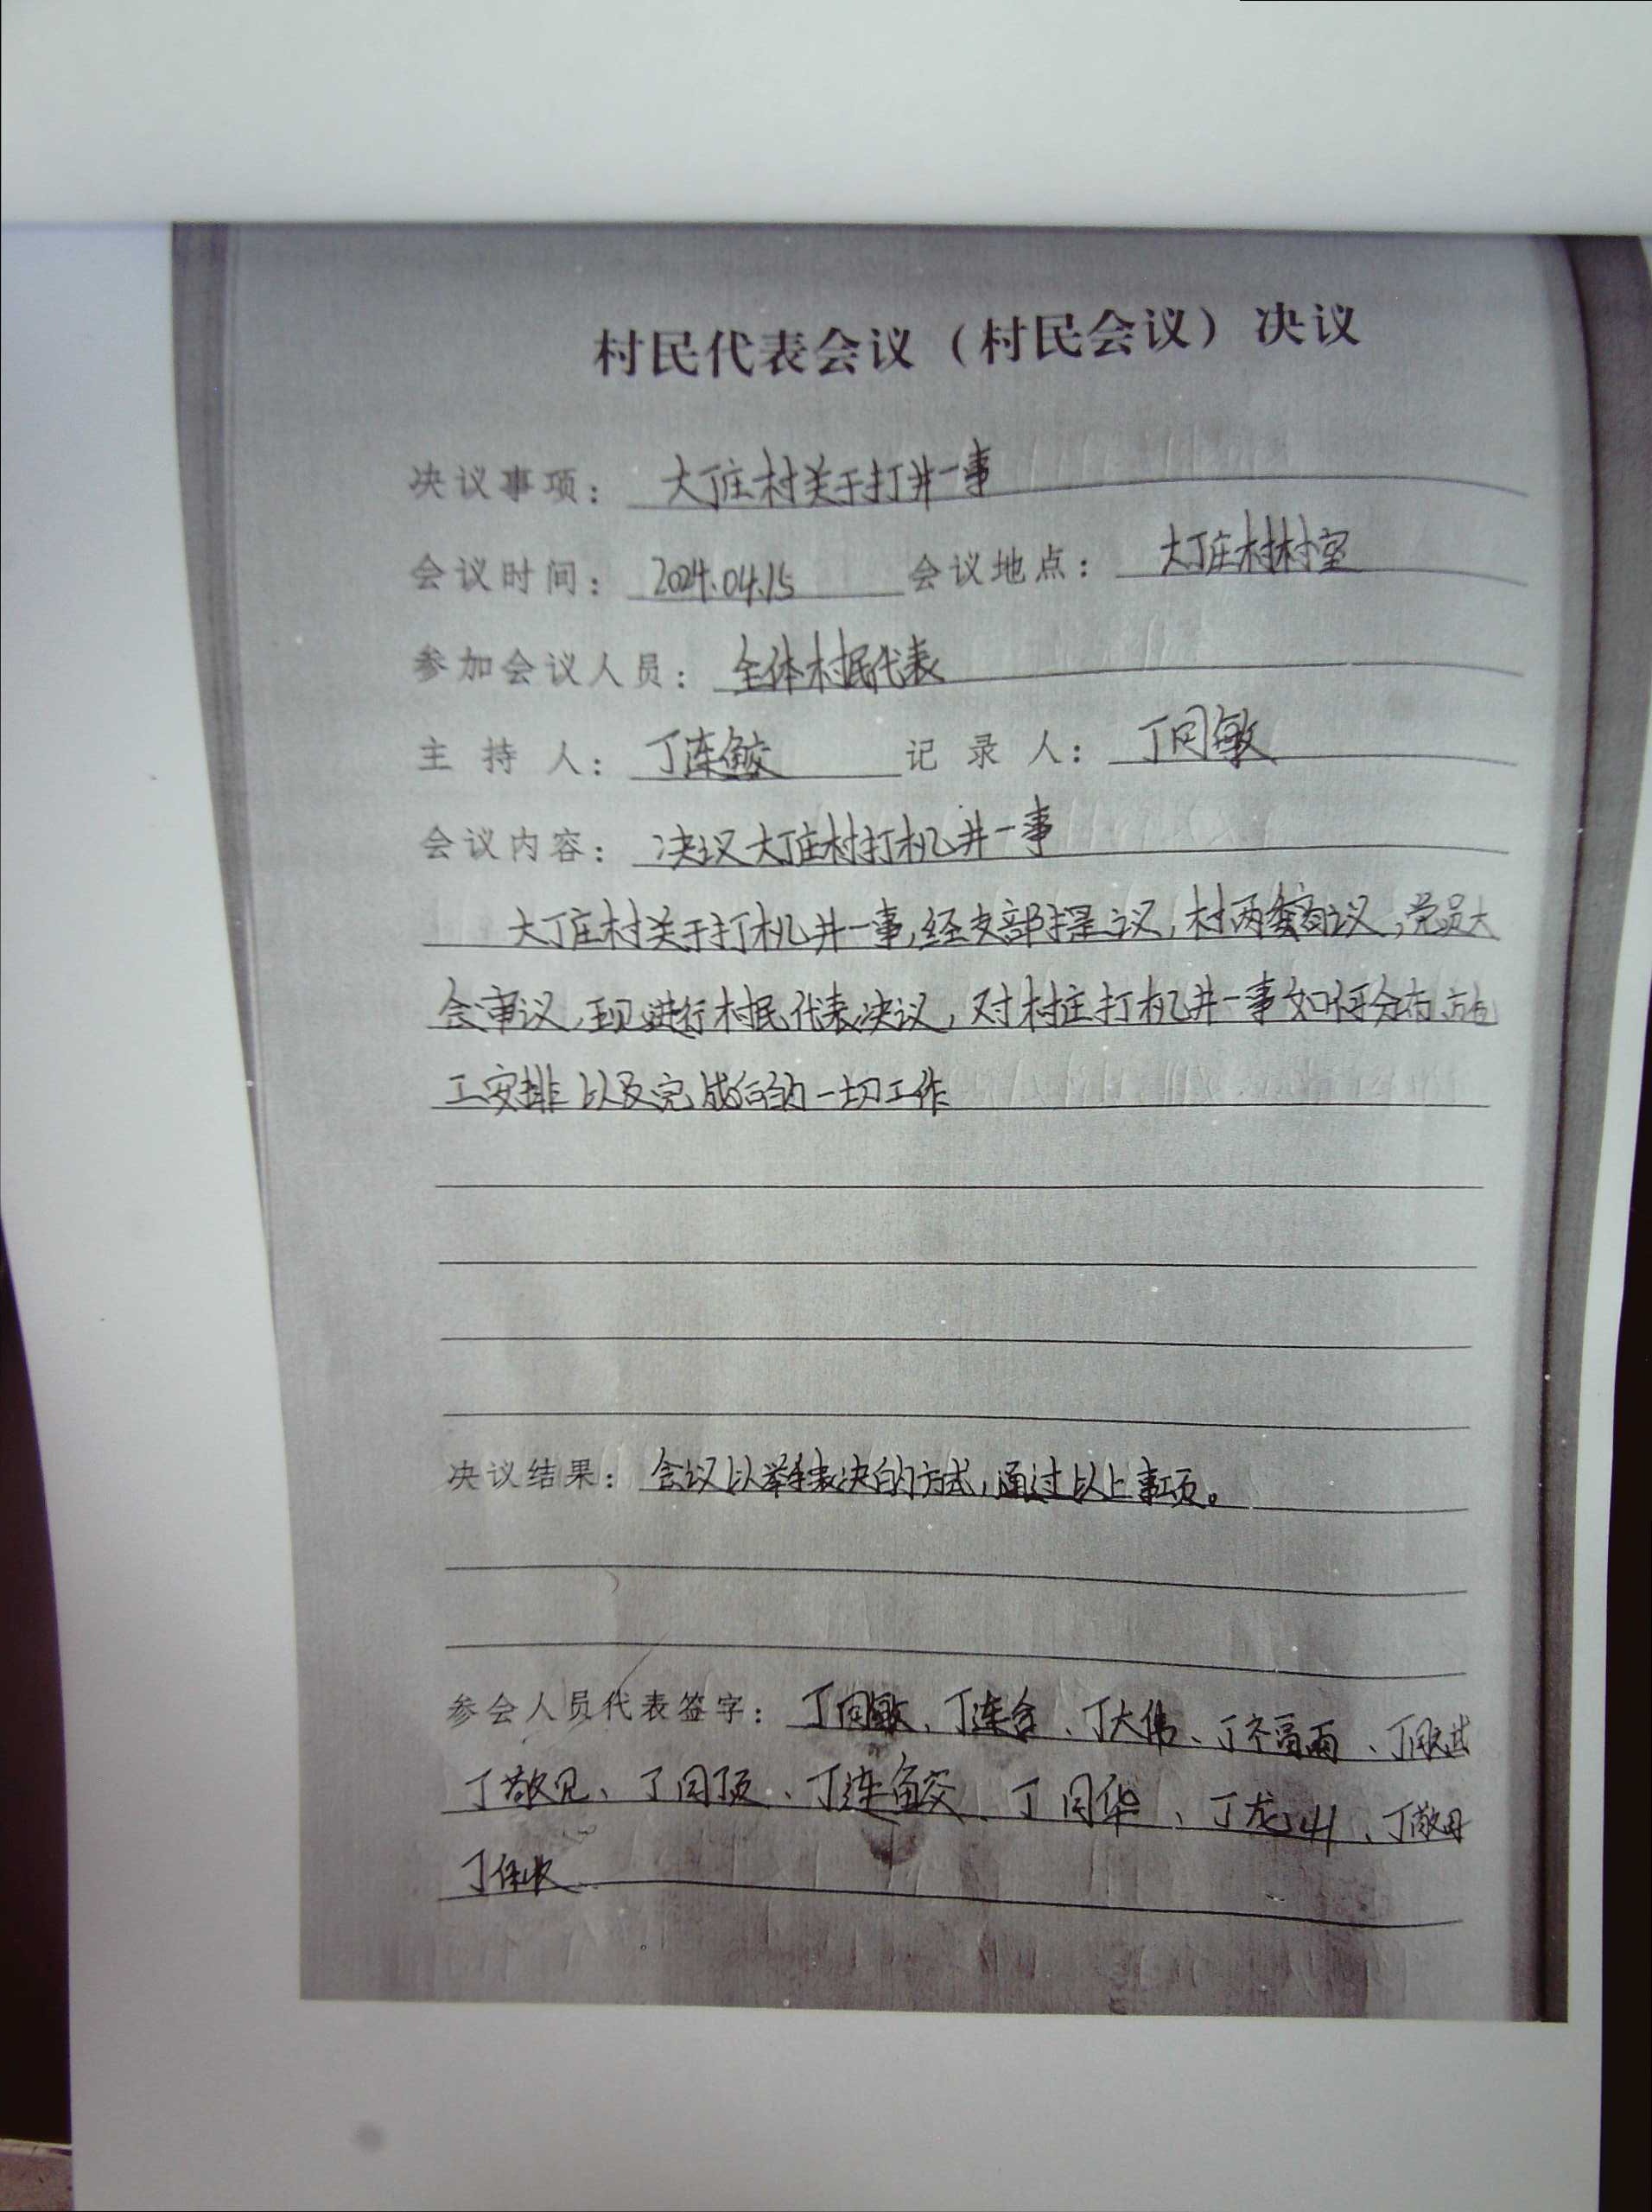 村民代表会议（村民会议）决议
决议事项： 大丁庄村关于打井一事
会议时间： 2024.04.15 会议地点： 大丁庄村村室
参加会议人员： 全体村民代表
主 持 人： 丁连鲛 记 录 人： 丁同敏
会议内容： 决议大丁庄村打机井一事
大丁庄村关于打机井一事,经支部提议,村两委商议,党员大
会审议,现进行村民代表决议,对村庄打机井一事如何分布施
工安排以及完成后的一切工作
决议结果： 会议以举手表决的方式,通过以上事项。
参会人员代表签字： 丁同敏、丁连合、丁大伟、丁福雨、
丁敬见、丁同顶、丁连鲛、丁同华、丁龙山、丁敬